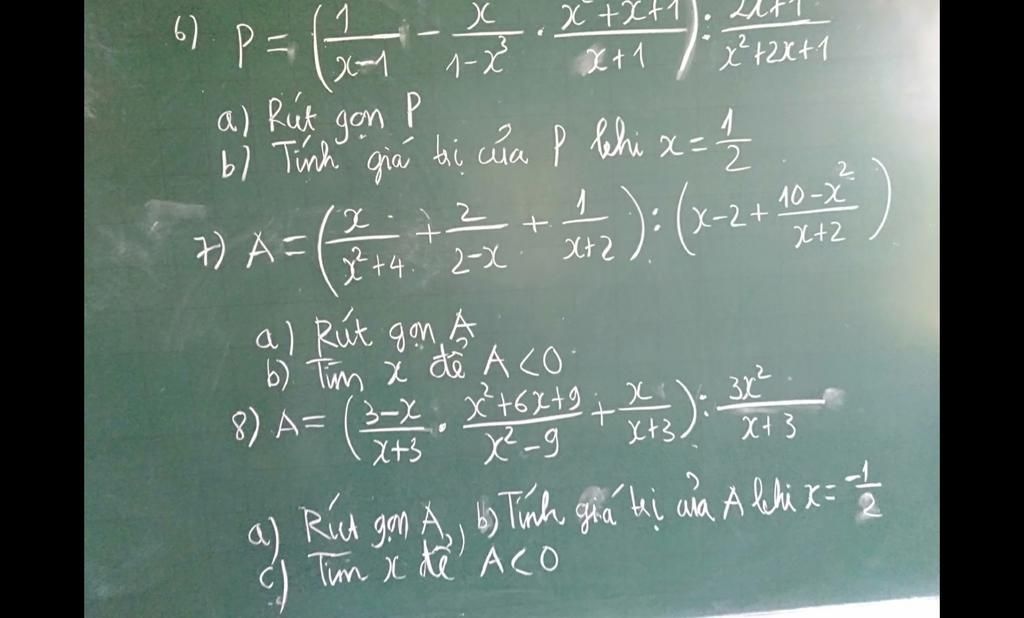 6) P = (1/(x-1) - x/(1-x³) · (x²+x+1)/(x+1)) : (2x+1)/(x²+2x+1)
a) Rút gọn P
b) Tính giá trị của P khi x = 1/2
7) A = (x/(x²+4) + 2/(2-x) + 1/(x+2)) : (x-2 + (10-x²)/(x+2))
a) Rút gọn A
b) Tìm x để A < 0
8) A = ((3-x)/(x+3) · (x²+6x+9)/(x²-9) + x/(x+3)) : 3x²/(x+3)
a) Rút gọn A, b) Tính giá trị của A khi x = -1/2
c) Tìm x để A < 0